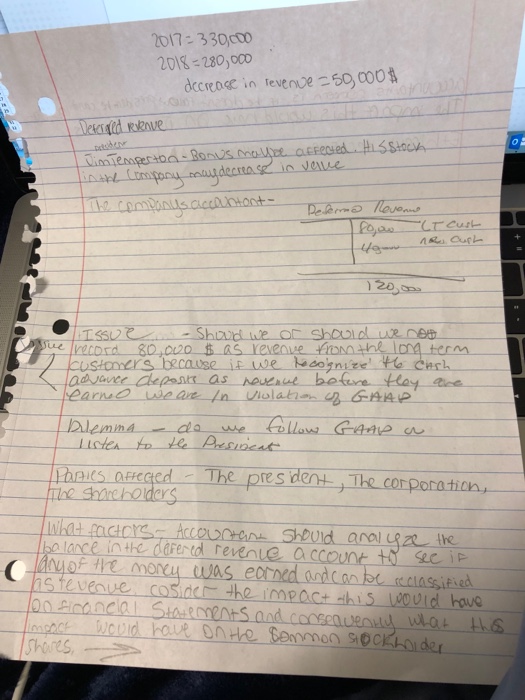 2017 = 330,000
2018 = 280,000
decrease in revenue = 50,000$
Deferred revenue
Jim Temperton - Bonus maybe affected. His Stock
in the Company may decrease in value
The companys accountant -
Deferred Revenue
80,000 LT Cust
new Cust
120,000
ISSUE - Should we or should we not
record 80,000 $ as revenue from the long term
customers because if we recognize the cash
advance deposits as revenue before they are
earned we are in violation of GAAP
Dilemma - do we follow GAAP or
listen to the President
Parties affected - The president, The corporation,
The shareholders
What factors - Accountant should analyze the
balance in the defered revenue account to see if
any of the money was earned and can be reclassified
as revenue cosider the impact this would have
on financial Statements and consequently what this
impact would have on the common stockholder
shares. →